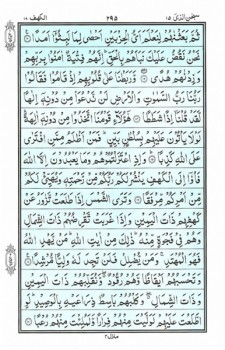 الكهف ١٨
٢٩٥
سبحن الذى ١٥
ثُمَّ بَعَثْنٰهُمْ لِنَعْلَمَ اَيُّ الْحِزْبَيْنِ اَحْصٰى لِمَا لَبِثُوْٓا اَمَدًا
نَحْنُ نَقُصُّ عَلَيْكَ نَبَاَهُمْ بِالْحَقِّ اِنَّهُمْ فِتْيَةٌ اٰمَنُوْا بِرَبِّهِمْ
وَزِدْنٰهُمْ هُدًى وَّرَبَطْنَا عَلٰى قُلُوْبِهِمْ اِذْ قَامُوْا فَقَالُوْا
رَبُّنَا رَبُّ السَّمٰوٰتِ وَالْاَرْضِ لَنْ نَّدْعُوَا۟ مِنْ دُوْنِهٖٓ اِلٰهًا
لَّقَدْ قُلْنَآ اِذًا شَطَطًا هٰٓؤُلَآءِ قَوْمُنَا اتَّخَذُوْا مِنْ دُوْنِهٖٓ اٰلِهَةً
لَوْلَا يَاْتُوْنَ عَلَيْهِمْ بِسُلْطٰنٍ بَيِّنٍ فَمَنْ اَظْلَمُ مِمَّنِ افْتَرٰى
عَلَى اللّٰهِ كَذِبًا وَاِذِ اعْتَزَلْتُمُوْهُمْ وَمَا يَعْبُدُوْنَ اِلَّا اللّٰهَ
فَاْوٗٓا اِلَى الْكَهْفِ يَنْشُرْ لَكُمْ رَبُّكُمْ مِّنْ رَّحْمَتِهٖ وَيُهَيِّئْ لَكُمْ
مِّنْ اَمْرِكُمْ مِّرْفَقًا وَتَرَى الشَّمْسَ اِذَا طَلَعَتْ تَّزٰوَرُ عَنْ
كَهْفِهِمْ ذَاتَ الْيَمِيْنِ وَاِذَا غَرَبَتْ تَّقْرِضُهُمْ ذَاتَ الشِّمَالِ
وَهُمْ فِيْ فَجْوَةٍ مِّنْهُ ذٰلِكَ مِنْ اٰيٰتِ اللّٰهِ مَنْ يَّهْدِ اللّٰهُ
فَهُوَ الْمُهْتَدِ وَمَنْ يُّضْلِلْ فَلَنْ تَجِدَ لَهٗ وَلِيًّا مُّرْشِدًا
وَتَحْسَبُهُمْ اَيْقَاظًا وَّهُمْ رُقُوْدٌ وَّنُقَلِّبُهُمْ ذَاتَ الْيَمِيْنِ
وَذَاتَ الشِّمَالِ وَكَلْبُهُمْ بَاسِطٌ ذِرَاعَيْهِ بِالْوَصِيْدِ لَوِ
اطَّلَعْتَ عَلَيْهِمْ لَوَلَّيْتَ مِنْهُمْ فِرَارًا وَّلَمُلِئْتَ مِنْهُمْ رُعْبًا